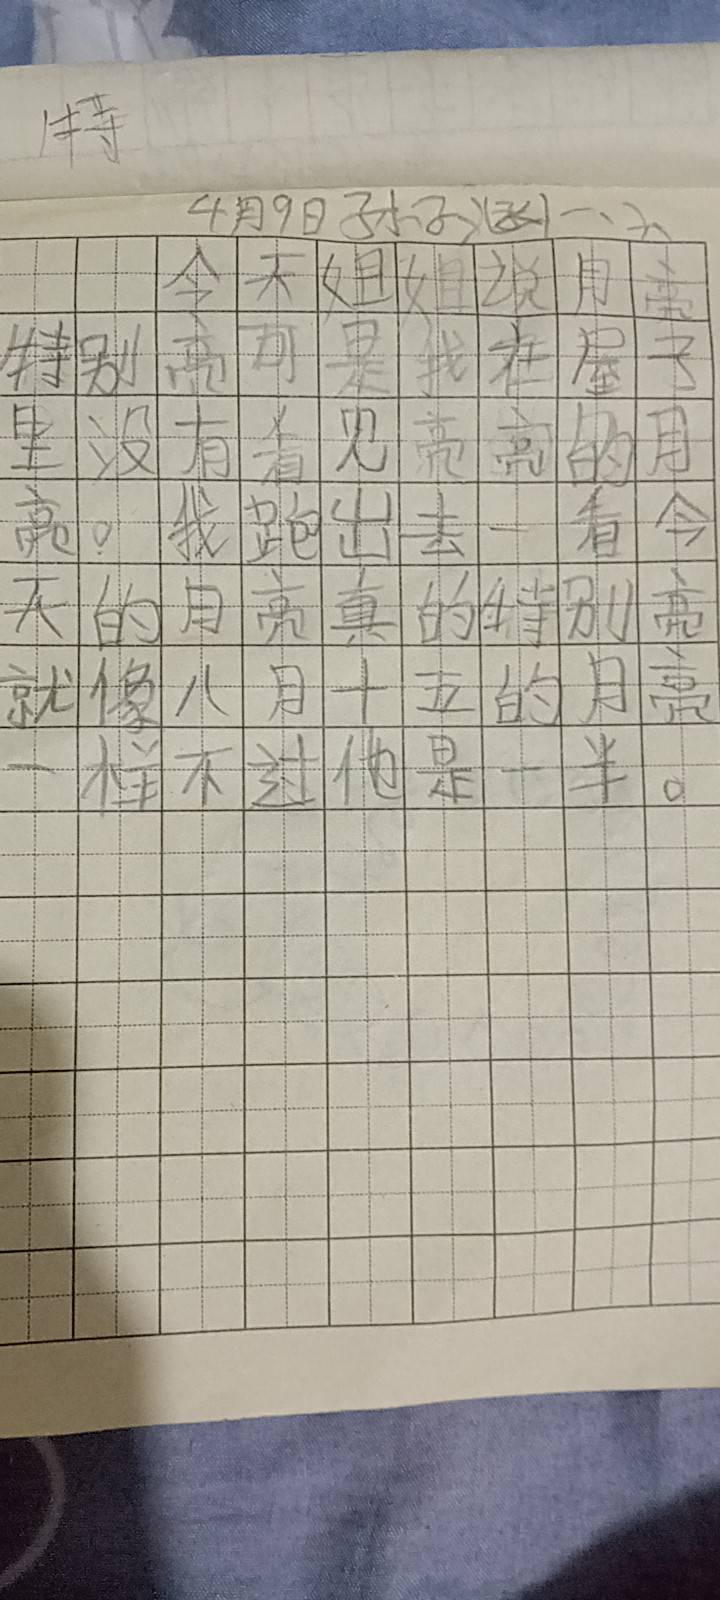 特
4月9日 孙子涵 一、六
今天姐姐说月亮
特别亮可是我在屋子
里没有看见亮亮的月
亮。我跑出去一看今
天的月亮真的特别亮
就像八月十五的月亮
一样不过他是一半。